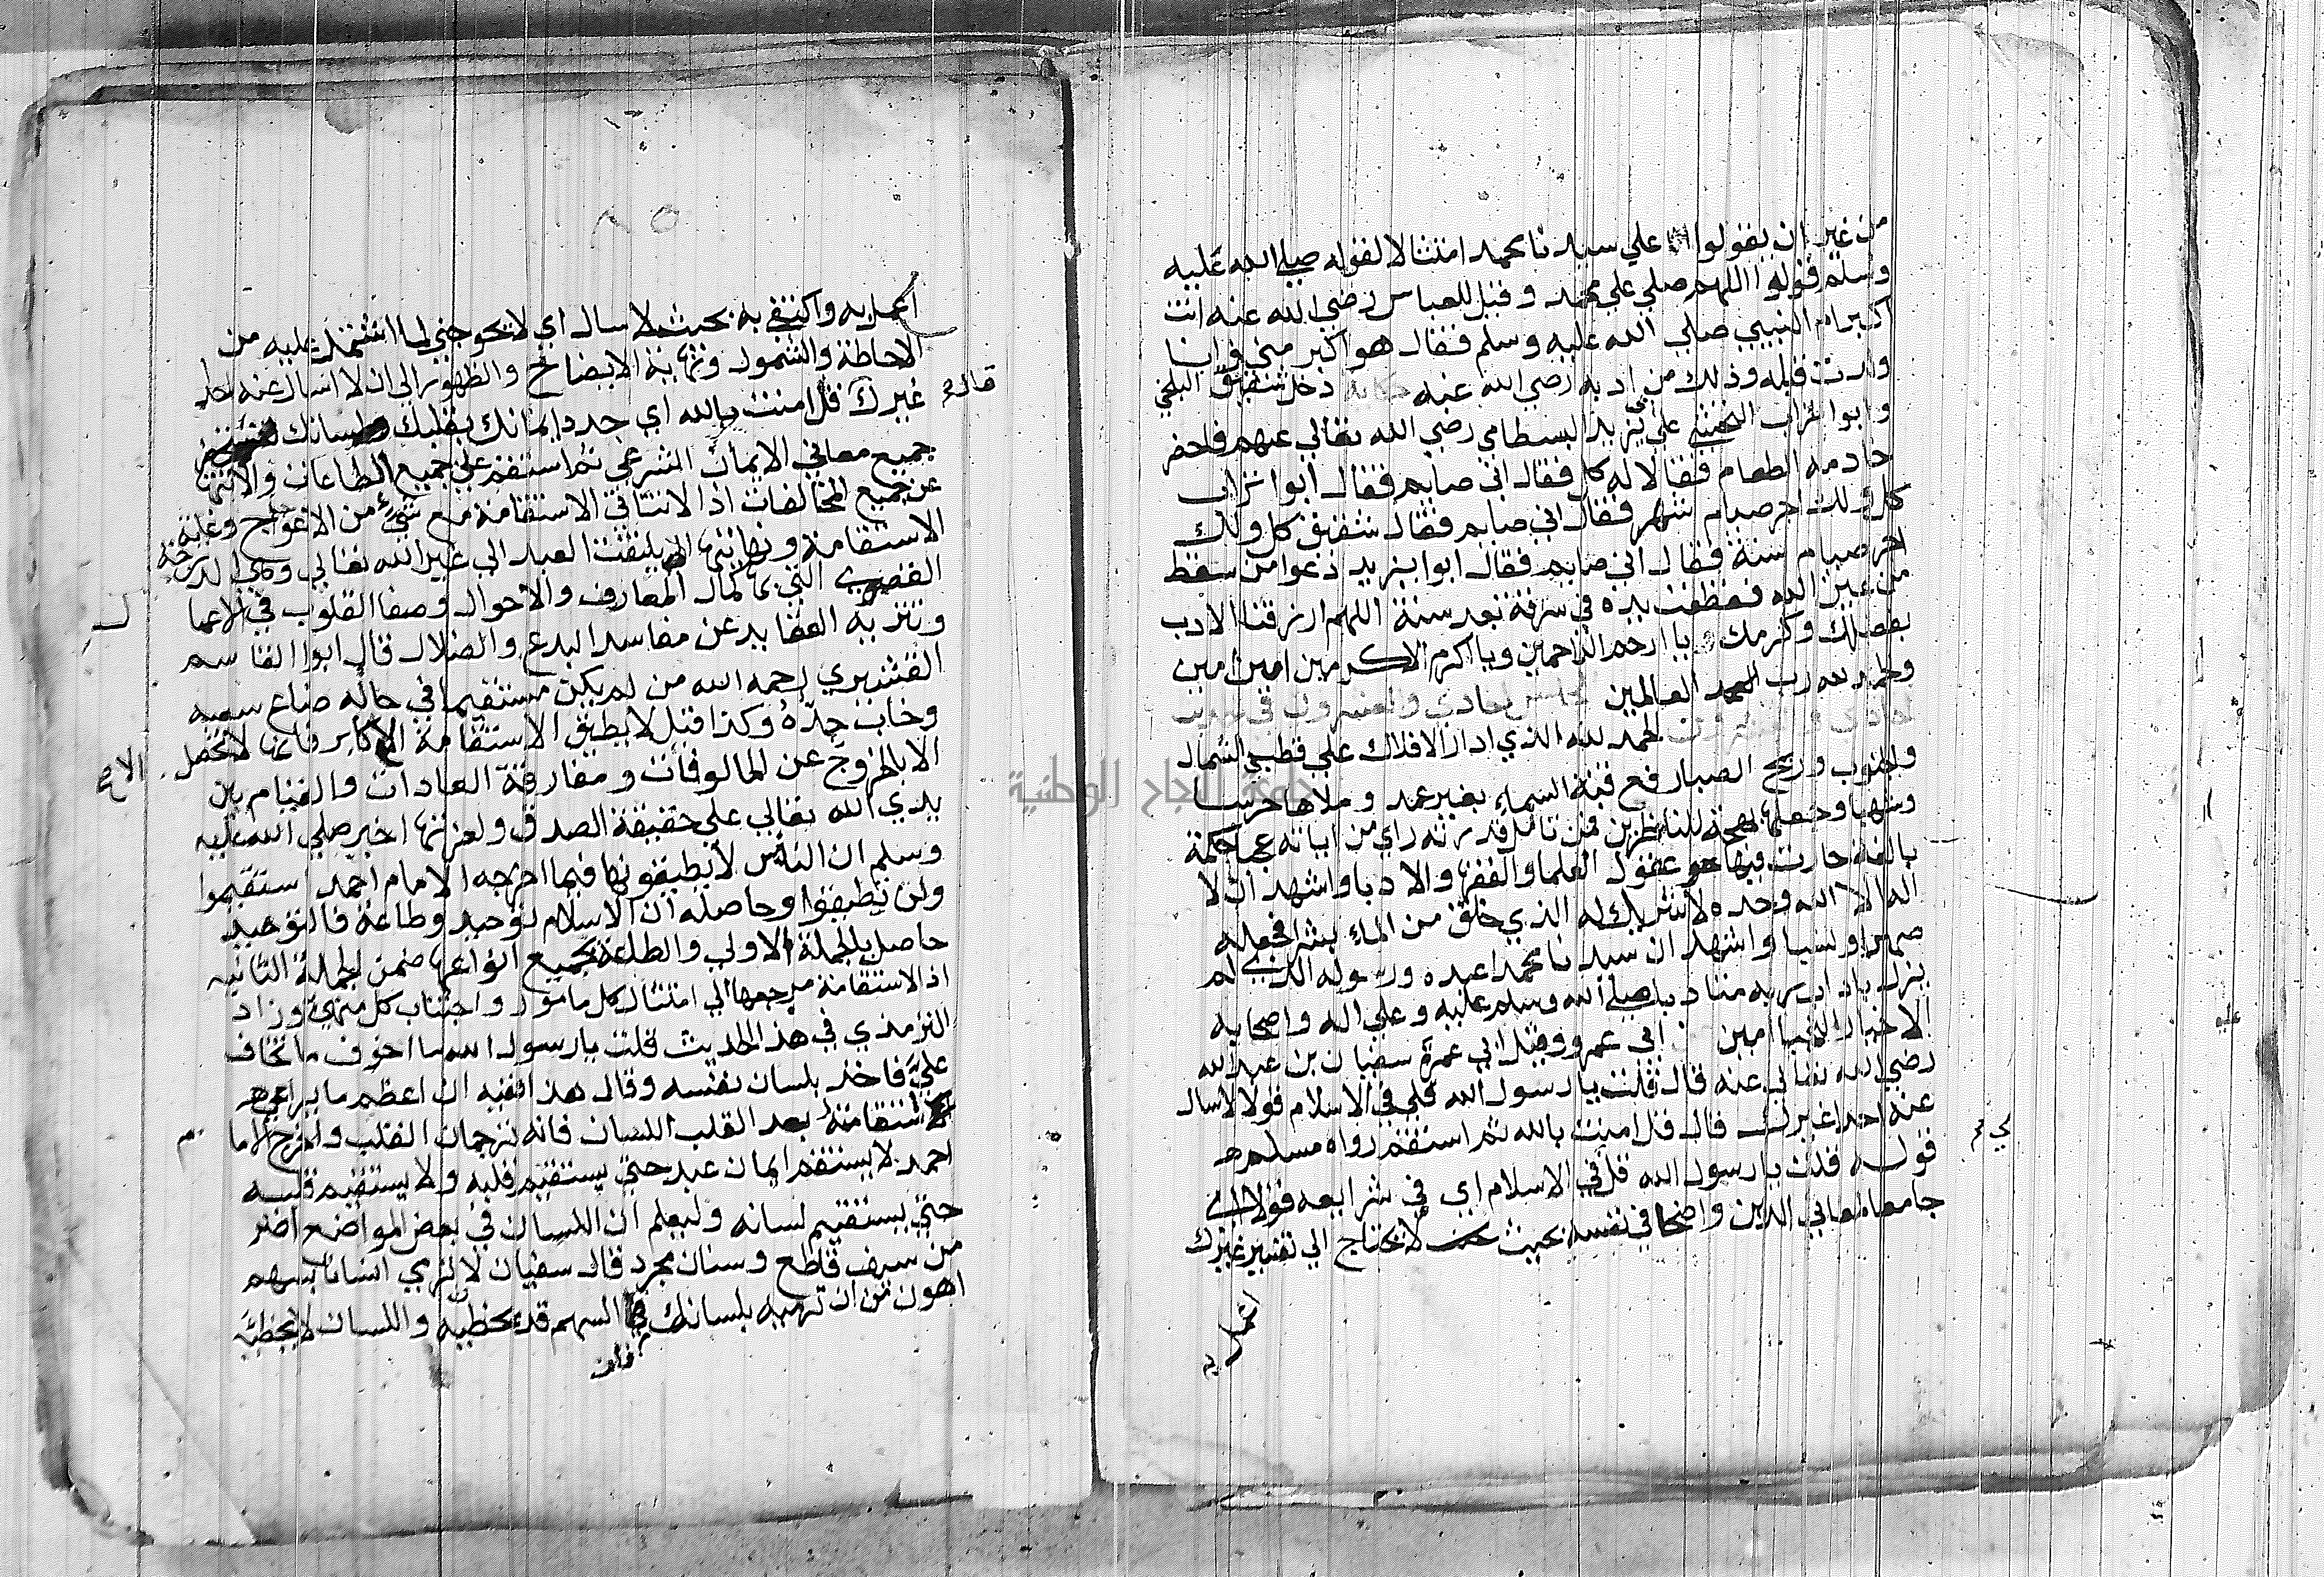 من غير ان يقولوا علي سيدنا محمد امتثالا لقوله صلي الله عليه
وسلم قولو اللهم صلي علي محمد وقيل للعباس رضي الله عنه انت
اكبر ام النبيي صلي الله عليه وسلم فقال هو اكبر مني وانا
ولدت قبله وذلك من ادبه رضي الله عنه حكاية دخل شقيق البلخي
وابوا تراب النخشبي علي يزيد البسطامي رضي الله تعالي عنهم فاحضر
خادمه الطعام فقالا له كل فقال اني صايم فقال ابوا تراب
كل ولك اجر صيام شهر فقال اني صايم فقال شقيق كل ولك
اجر صيام سنة فقال اني صايم فقال ابوا يزيد دعوا من سقط
من عين الله فقطعت يده في سرقة بعد سنة اللهم ارزقنا الادب
بفضلك وكرمك يا ارحم الراحمين ويا اكرم الاكرمين امين امين
والحمد لله رب العالمين المجلس الحادي والعشرون في الحديث
الحادي والعشرون الحمد لله الذي ادار الافلاك علي قطبي الشمال
والجنوب وريح الصبا رفع قبة السماء بغير عمد وملاها حرسا
وشهبا وجعلها بهجة للناظرين فمن تامل قدرته راي من اياته عجبا حكمة
بالغة حارت فيها عقول العلما والفقها والادبا واشهد ان لا
اله الا الله وحده لا شريك له الذي خلق من الماء بشرا فجعله
صهرا ونسبا واشهد ان سيدنا محمدا عبده ورسوله الذي لم
يزل باداب ربه متادبا صلي الله وسلم عليه وعلي اله واصحابه
الاخيار النجبا امين عن ابي عمرو وقيل ابي عمرة سفيان بن عبد الله
رضي الله تعالي عنه قال قلت يا رسول الله قل لي في الاسلام قولا لا اسال
عنه احدا غيرك قال قل امنت بالله ثم استقم رواه مسلم
قوله قلت يا رسول الله قل في الاسلام اي في شرايعه قولا اي
جامعا لمعاني الدين واضحا في نفسه بحيث لا يحتاج الي تفسير غيرك
اعمل به
اعمل به واكتفي به بحيث لا اسال اي لا تحوجني لما اشتمل عليه من
الاحاطة والشمول ونهاية الايضاح والظهور الي ان لا اسال عنه احد
غيرك قل امنت بالله اي جدد ايمانك بقلبك ولسانك
قال
جميع معاني الايمان الشرعي ثم استقم علي جميع الطاعات والانتها
عن جميع المخالفات اذ لا تتاتي الاستقامة مع شيء من الاعوجاج وغاية
الاستقامة ونهايتها ان لا يلتفت العبد الي غير الله تعالي وهي الدرجة
القصوي التي بها كمال المعارف والاحوال وصفا القلوب في الاعما
ل
وتنزيه العقايد عن مفاسد البدع والضلال قال ابوا القاسم
القشيري رحمه الله من لم يكن مستقيما في حاله ضاع سعيه
وخاب جده وكذا قيل لا يطيق الاستقامة الا الاكابر فانها لا تحصل
الابالخروج عن المالوفات ومفارقة العادات والقيام بين
يدي الله تعالي علي حقيقة الصدق ولعزتها اخبر صلي الله عليه
وسلم ان الناس لا يطيقونها فيما اخرجه الامام احمد استقيموا
ولن تطيقوا وحاصله ان الاسلام توحيد وطاعة فالتوحيد
حاصل بالجملة الاولي والطاعة بجميع انواعها ضمن الجملة الثانية
اذ الاستقامة مرجعها الي امتثال كل مامور واجتناب كل منهي وزاد
الترمذي في هذا الحديث قلت يا رسول الله ما اخوف ما تخاف
علي فاخذ بلسان نفسه وقال هذا انتبه ان اعظم ما يراعي
استقامته بعد القلب اللسان فانه ترجمان القلب واخرج الاما
م
احمد لا يستقيم ايمان عبد حتي يستقيم قلبه ولا يستقيم قلبه
حتي يستقيم لسانه وليعلم ان اللسان في بعض المواضع اضر
من سيف قاطع وسنان مجرد قال سفيان لان ترمي انسانا بسهم
اهون من ان ترميه بلسانك السهم قد يخطيه واللسان لا يخطيه
فان
جامعة النجاح الوطنية